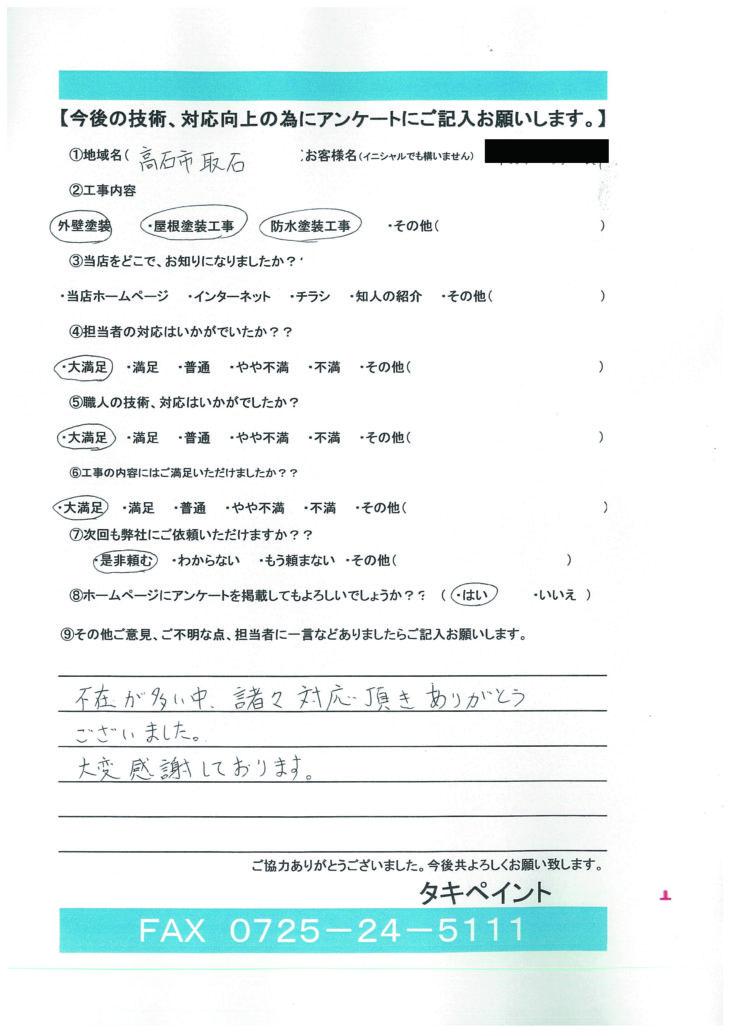 【今後の技術、対応向上の為にアンケートにご記入お願いします。】
①地域名( 高石市取石 :お客様名(イニシャルでも構いません)
②工事内容
外壁塗装 ・屋根塗装工事 防水塗装工事 ・その他( )
③当店をどこで、お知りになりましたか？
・当店ホームページ ・インターネット ・チラシ ・知人の紹介 ・その他( )
④担当者の対応はいかがでいたか？？
・大満足 ・満足 ・普通 ・やや不満 ・不満 ・その他( )
⑤職人の技術、対応はいかがでしたか？
・大満足 ・満足 ・普通 ・やや不満 ・不満 ・その他( )
⑥工事の内容にはご満足いただけましたか？？
・大満足 ・満足 ・普通 ・やや不満 ・不満 ・その他( )
⑦次回も弊社にご依頼いただけますか？？
・是非頼む ・わからない ・もう頼まない ・その他( )
⑧ホームページにアンケートを掲載してもよろしいでしょうか？？ ( ・はい ・いいえ )
⑨その他ご意見、ご不明な点、担当者に一言などありましたらご記入お願いします。
不在が多い中、諸々対応頂きありがとう
ございました。
大変感謝しております。
ご協力ありがとうございました。今後共よろしくお願い致します。
タキペイント
FAX 0725－24－5111